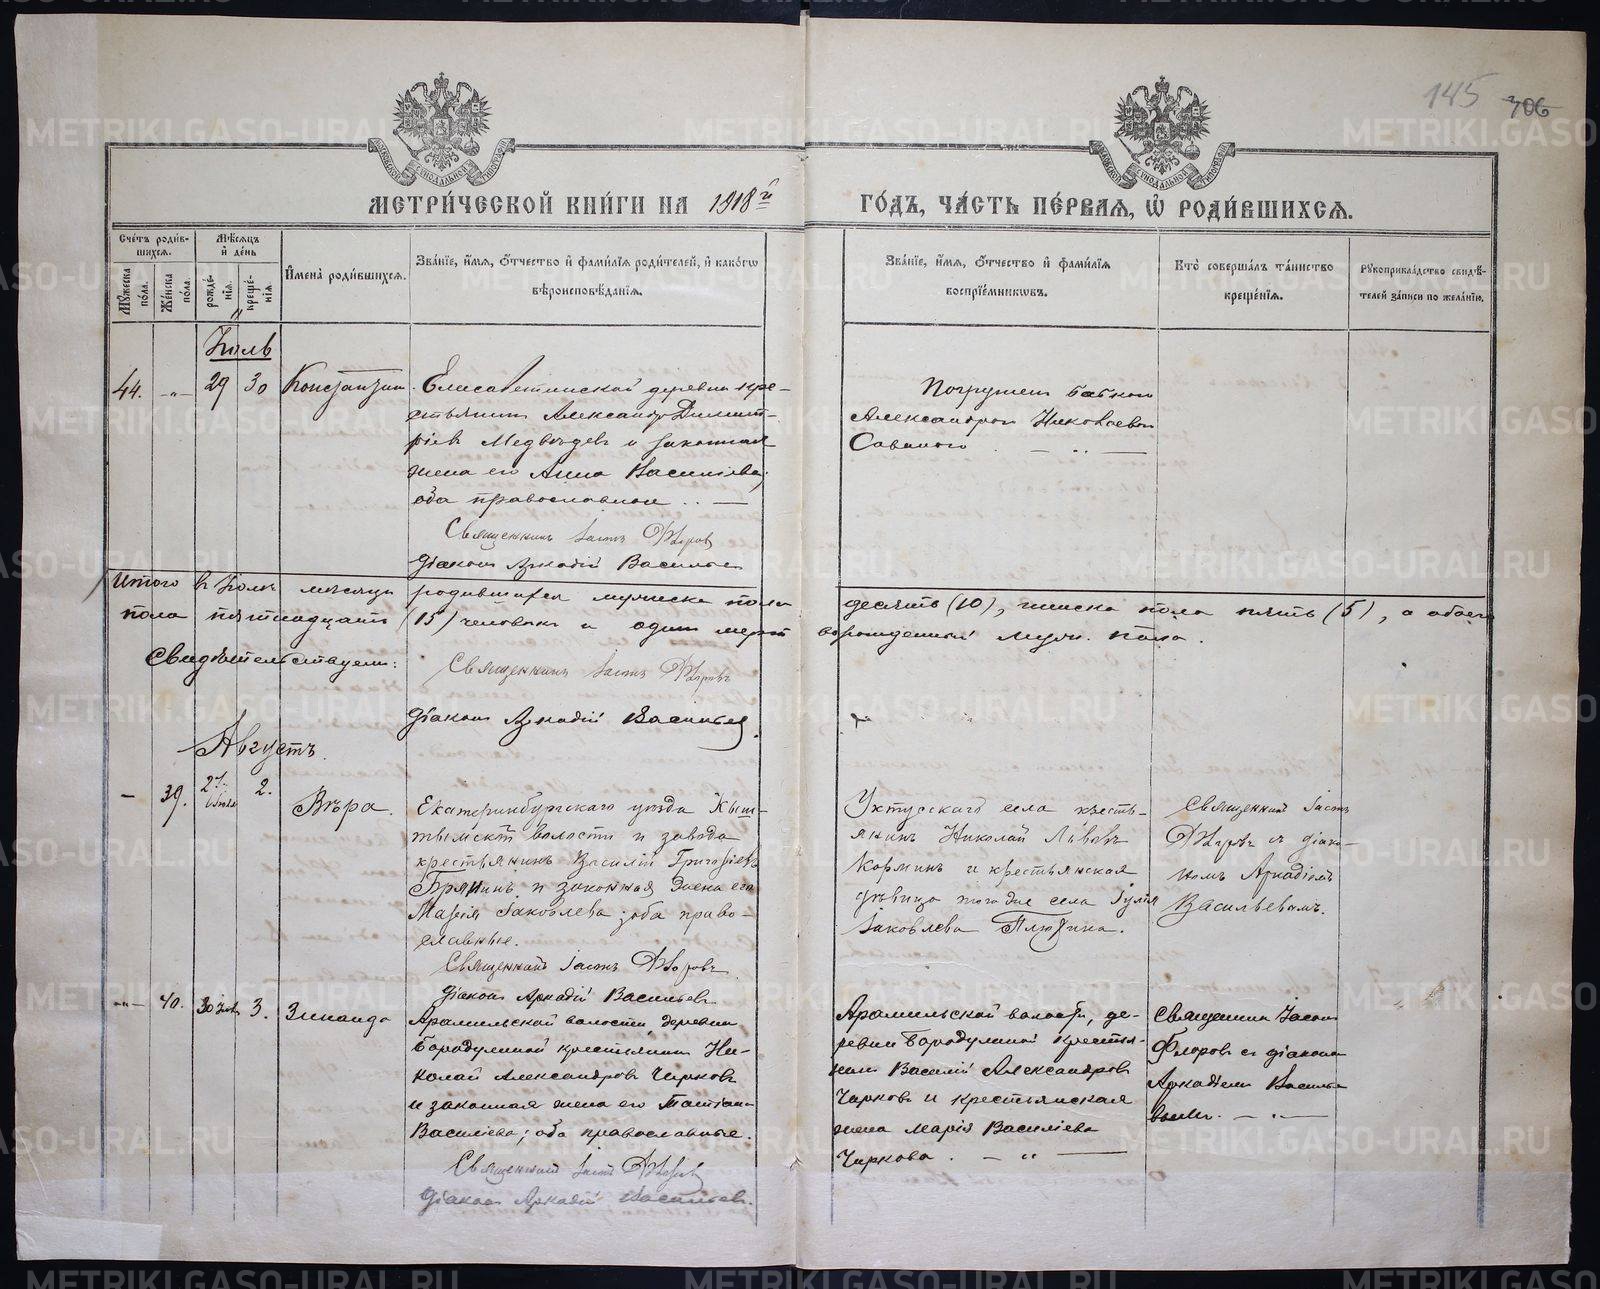 145 706
МЕТРИ́ЧЕСКОЙ КНИ́ГИ НА 1918й ГО́ДЪ, ЧА́СТЬ ПЕ́РВАЯ, Ѡ РОДИ́ВШИХСЯ.
Сче́тъ роди́вшихся.
Му́жеска по́ла.
Же́нска по́ла.
Мѣ́сяцъ и де́нь
рожде́нія.
креще́нія.
И҆мена̀ роди́вшихся.
Зва́ніе, и҆́мя, ѻ҆́тчество и҆ фами́лія роди́телей, и҆ како́гѡ
вѣроисповѣ́данія.
Зва́ніе, и҆́мя, ѻ҆́тчество и҆ фами́лія
воспріе́мникѡвъ.
Кто̀ соверша́лъ та́инство
креще́нія.
Рукоприкла́дство свидѣ́-
телей за́писи по жела́нію.
Іюль
44. -"- 29 30 Константин
Елисаветинской деревни кре-
стьянин Александр Димит-
ріев Медведев и законная
жена его Анна Василіева,
оба православные
Священникъ Іасонъ Флоровъ
Діаконъ Аркадій Васильев
Погружен бабкой
Александрой Николаевой
Итого в Іюле месяце родившихся мужеска пола десять (10), женска пола пять (5), а обоего
пола пятнадцать (15) человек и один мертворожденный муж. пола.
Свидѣтельствуем:
Священникъ Іасонъ Флоровъ
Діакон Аркадій Васильев.
Августъ.
– 39. 27 Іюля 2. Вѣра.
Екатеринбургскаго уезда Кыш-
тымской волости и завода
крестьянинъ Василій Григорьевъ
и законная жена его
Марія Іаковлева; оба право-
славные.
Священникъ Іасонъ Флоровъ
Діакон Аркадій Васильевъ
Уктусскаго села кресть-
янинъ Николай Львовъ
Корминъ и крестьянская
дѣвица того же села Іулія
Іаковлева
Священникъ Іасонъ
Флоровъ съ діако-
номъ Аркадіемъ
Васильевымъ.
-"- 40. 30 Іюля 3. Зинаида
Арамильской волости, деревни
Бородулиной крестьянин Ни-
колай Александров Чирков
и законная жена его Татіана
Василіева; оба православные.
Священникъ Іасонъ Флоровъ
Діакон Аркадій Васильев.
Арамильской волости, де-
ревни Бородулиной крестья-
нин Василій Александров
Чирков и крестьянская
жена Марія Василіева
Чиркова.
Священник Іасон
Флоров с діаконом
Аркадіем Василье-
вым.
METRIKI.GASO-URAL.RU